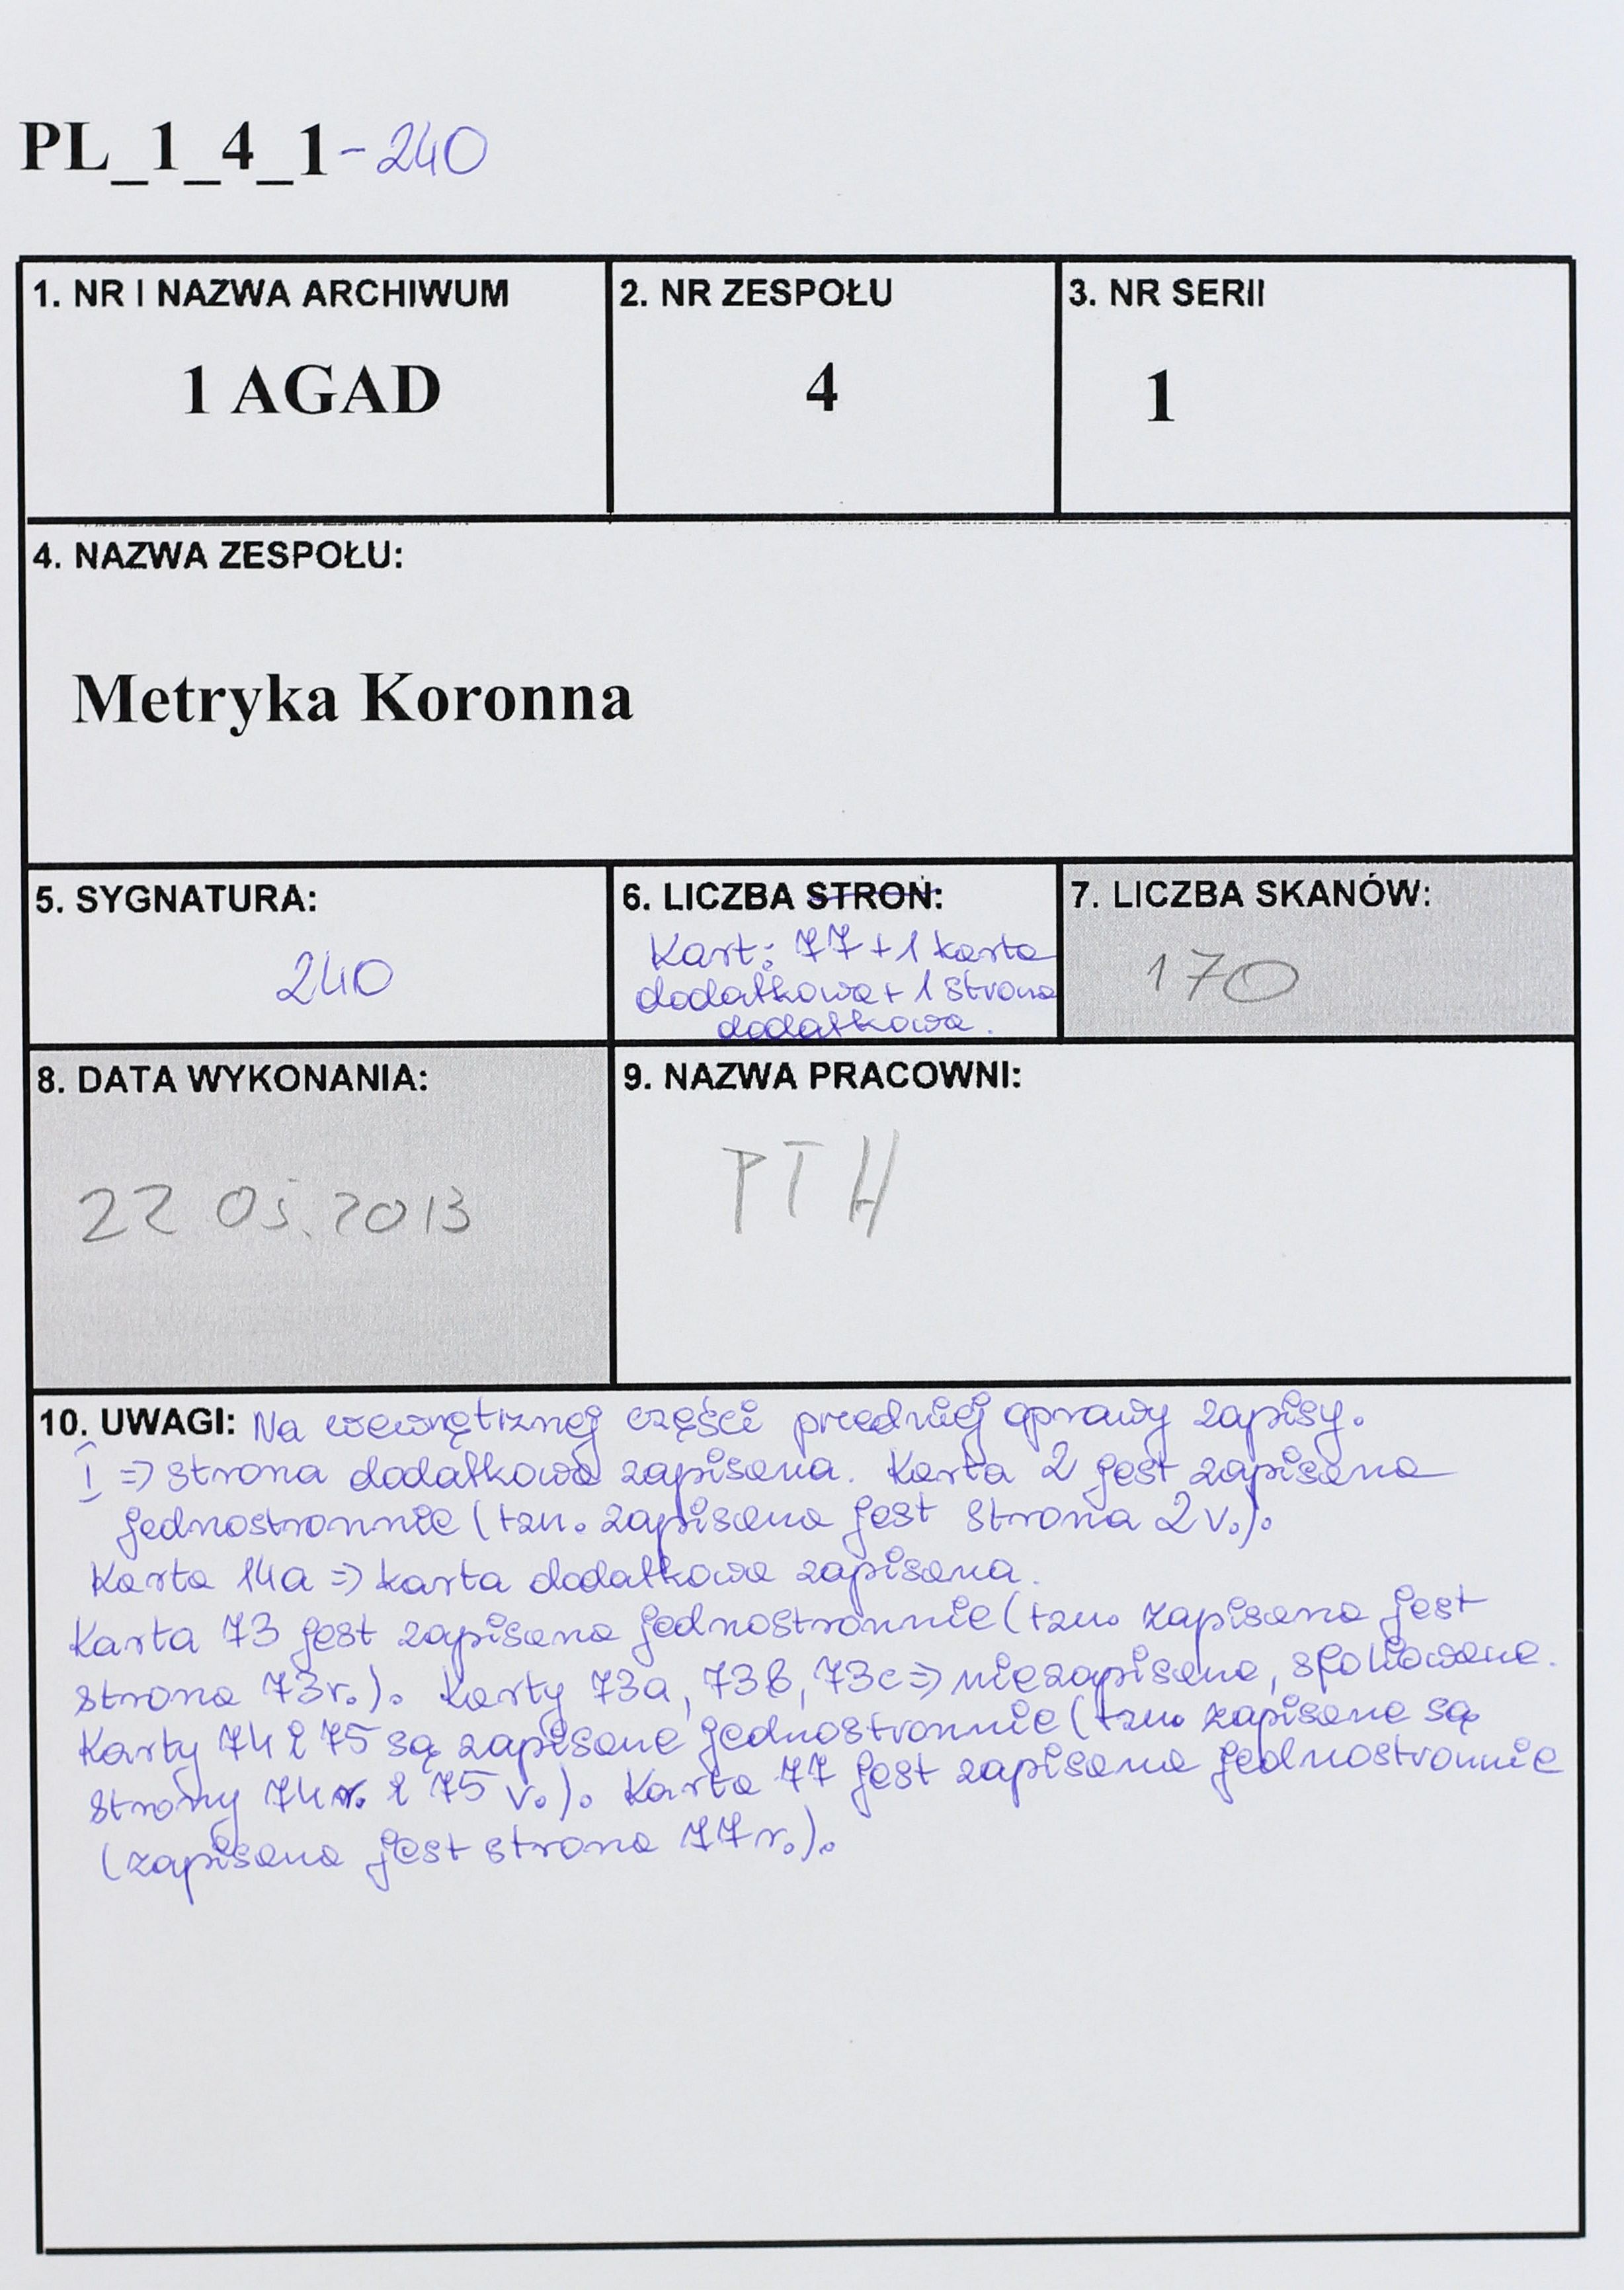 PL_1_4_1-240
1. NR I NAZWA ARCHIWUM
1 AGAD
2. NR ZESPOŁU
4
3. NR SERII
1
4. NAZWA ZESPOŁU:
Metryka Koronna
5. SYGNATURA:
240
6. LICZBA STRON:
Kart: 77 + 1 karta
dodatkowa + 1 strona
dodatkowa.
7. LICZBA SKANÓW:
170
8. DATA WYKONANIA:
22 05.2013
9. NAZWA PRACOWNI:
PTH
10. UWAGI: Na wewnętrznej części przedniej oprawy zapisy.
I => strona dodatkowa zapisana. Karta 2 jest zapisana
jednostronnie (tzn. zapisana jest strona 2 v.).
Karta 14a => karta dodatkowa zapisana.
Karta 73 jest zapisana jednostronnie (tzn. zapisana jest
strona 73r.). Karty 73a, 73b, 73c => niezapisane, sfoliowane.
Karty 74 i 75 są zapisane jednostronnie (tzn. zapisane są
strony 74r. i 75 v.). Karta 77 jest zapisana jednostronnie
(zapisana jest strona 77r.).